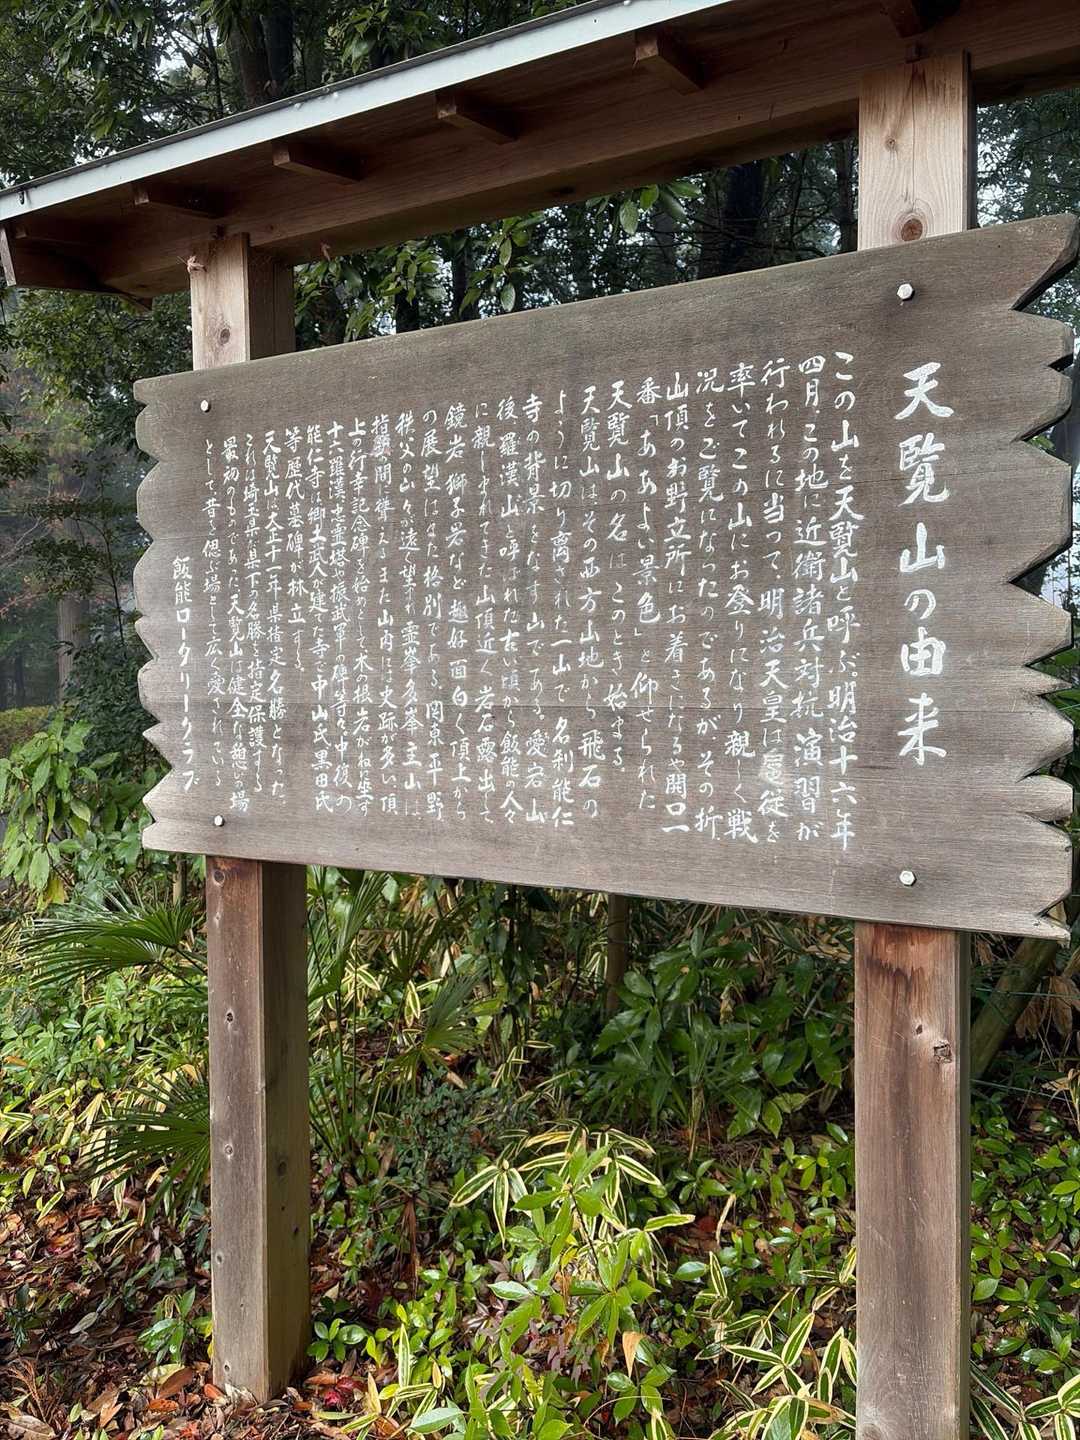 天覧山の由来
この山を天覧山と呼ぶ。明治十六年
四月、この地に近衛諸兵対抗演習が
行われるに当って、明治天皇は扈従を
率いてこの山にお登りになり親しく戦
況をご覧になったのであるが、その折、
山頂のお野立所にお着きになるや開口一
番「ああよい景色」と仰せられた
天覧山の名は このとき始まる。
天覧山は、その西方山地から飛石の
ように切り離された一山で 名刹能仁
寺の背景をなす山である。愛宕山
後、羅漢山と呼ばれた古い頃から飯能の人々
に親しまれてきた山頂近く岩石露出して
鏡岩 獅子岩など趣好面白く頂上から
の展望はまた格別である。関東平野
秩父の山々が遠望され霊峯多峯主山は、
指顧の間に聳えるまた山内には史跡が多い、頂
上の行幸記念碑を始めとして木の根岩がねに坐す
十六羅漢、忠霊塔や振武軍の碑等々。中復の
能仁寺は郷土武人が建てた寺で中山氏黒田氏
等歴代墓碑が林立する。
天覧山は大正十一年県指定名勝となった、
これは埼玉県が県下の名勝を指定保護する
最初のものであった天覧山は健全な憩いの場
として昔を偲ぶ場として広く愛されている
飯能ロータリークラブ